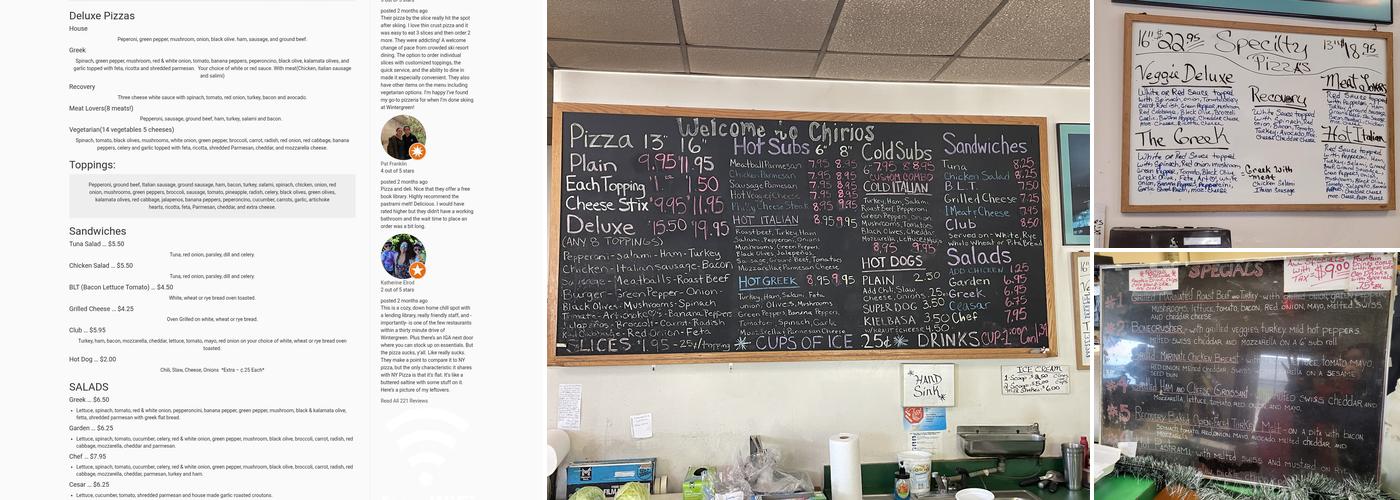 Deluxe Pizzas
House
Peperoni, green pepper, mushroom, onion, black olive. ham, sausage, and ground beef.
Greek
Spinach, green pepper, mushroom, red & white onion, tomato, banana peppers, peperoncino, black olive, kalamata olives, and
garlic topped with feta, ricotta and shredded parmesan. Your choice of white or red sauce. With meat(Chicken, Italian sausage
and salmi)
Recovery
Three cheese white sauce with spinach, tomato, red onion, turkey, bacon and avocado.
Meat Lovers(8 meats!)
Pepperoni, sausage, ground beef, ham, turkey, salami and bacon.
Vegetarian(14 vegetables 5 cheeses)
Spinach, tomato, black olives, mushrooms, white onion, green pepper, broccoli, carrot, radish, red onion, red cabbage, banana
peppers, celery and garlic topped with feta, ricotta, shredded Parmesan, cheddar, and mozzarella cheese.
Toppings:
Pepperoni, ground beef, Italian sausage, ground sausage, ham, bacon, turkey, salami, spinach, chicken, onion, red
onion, mushrooms, green peppers, broccoli, sausage, tomato, pineapple, radish, celery, black olives, green olives,
kalamata olives, red cabbage, jalapenos, banana peppers, peperoncino, cucumber, carrots, garlic, artichoke
hearts, ricotta, feta, Parmesan, cheddar, and extra cheese.
Sandwiches
Tuna Salad ... $5.50
Tuna, red onion, parsley, dill and celery.
Chicken Salad ... $5.50
Tuna, red onion, parsley, dill and celery.
BLT (Bacon Lettuce Tomato) ... $4.50
White, wheat or rye bread oven toasted.
Grilled Cheese ... $4.25
Oven Grilled on white, wheat or rye bread.
Club ... $5.95
Turkey, ham, bacon, mozzarella, cheddar, lettuce, tomato, mayo, red onion on your choice of white, wheat or rye bread oven
toasted.
Hot Dog ... $2.00
Chili, Slaw, Cheese, Onions *Extra - ¢.25 Each*
SALADS
Greek ... $6.50
Lettuce, spinach, tomato, red & white onion, pepperoncini, banana pepper, green pepper, mushroom, black & kalamata olive,
fetta, shredded parmesan with greek flat bread.
Garden ... $6.25
Lettuce, spinach, tomato, cucumber, celery, red & white onion, green pepper, mushroom, black olive, broccoli, carrot, radish, red
cabbage, mozzarella, cheddar and parmesan.
Chef ... $7.95
Lettuce, spinach, tomato, cucumber, celery, red & white onion, green pepper, mushroom, black olive, broccoli, carrot, radish, red
cabbage, mozzarella, cheddar, parmesan, turkey and ham.
Cesar ... $6.25
Lettuce, cucumber, tomato, shredded parmesan and house made garlic roasted croutons.
posted 2 months ago
Their pizza by the slice really hit the spot
after skiing. I love thin crust pizza and it
was easy to eat 3 slices and then order 2
more. They were addicting! A welcome
change of pace from crowded ski resort
dining. The option to order individual
slices with customized toppings, the
quick service, and the ability to dine in
made it especially convenient. They also
have other items on the menu including
vegetarian options. I'm happy I've found
my go-to pizzeria for when I'm done skiing
at Wintergreen!
Pat Franklin
4 out of 5 stars
posted 2 months ago
Pizza and deli. Nice that they offer a free
book library. Highly recommend the
pastrami melt! Delicious. I would have
rated higher but they didn't have a working
bathroom and the wait time to place an
order was a bit long.
Katherine Elrod
2 out of 5 stars
posted 2 months ago
This is a cozy, down home chill spot with
a lending library, really friendly staff, and -
importantly- is one of the few restaurants
within a thirty minute drive of
Wintergreen. Plus there's an IGA next door
where you can stock up on essentials. But
the pizza sucks, y'all. Like really sucks.
They make a point to compare it to NY
pizza, but the only characteristic it shares
with NY Pizza is that it's flat. It's like a
buttered saltine with some stuff on it.
Here's a picture of my leftovers.
Read All 221 Reviews
Welcome to Chirios
Pizza 13" 16"
Plain 9.95 11.95
Each Topping 1.- 1.50
Cheese Stix 9.95 11.95
Deluxe 15.50 19.95
(ANY 8 TOPPINGS)
Pepperoni-Salami-Ham-Turkey
Chicken-Italian sausage-Bacon
Sausage-Meatballs-Roast Beef
Burger-Green Pepper-Onion-
Black Olives-Mushrooms-Spinach
Tomato-Artichoke's-Banana Peppers
Jalapeños-Broccoli-Carrot-Radish
Red Onion-Feta
SLICES $1.95-25¢/topping
Hot Subs 6" 8"
Meatball Parmesan 7.95 8.95
Chicken Parmesan 7.95 8.95
Sausage Parmesan 7.95 8.95
Philly Cheese Steak 8.95 9.95
HOT ITALIAN 8.95 9.95
Roast beef, Turkey, Ham
Salami, Pepperoni, Onions
Mushrooms, Green Peppers,
Black Olives, Jalapeños,
HOT GREEK 8.95 9.95
Turkey, Ham, Salami, Feta
Onion, Olives, Mushrooms
Green Peppers, Banana Peppers,
Tomato, Spinach, Garlic
Cold Subs
7.95 8.95
CUSTOM COMBO
COLD ITALIAN
Turkey, Ham, Salami,
Roast Beef, Pepperoni,
Green Peppers, Onion,
Mushrooms, Tomato,
Black Olives, Cheddar
8.95 9.95
HOT DOGS
PLAIN 2.50
Add Chili, Slaw,
Cheese, Onions .25
SUPER DOG 3.50
KIELBASA 3.50
w/Kraut + Cheese 4.50
Sandwiches
Tuna 8.25
Chicken Salad 8.25
B.L.T. 7.50
Grilled Cheese 7.25
1 Meat + Cheese 7.95
Club 8.50
Served on-White, Rye
Whole Wheat or Pita Bread
Salads
ADD CHICKEN 1.25
Garden 6.95
Greek 6.95
Cesar 6.75
Chef 7.95
CUPS OF ICE 25¢ DRINKS CUP-1.00
HAND
Sink
ICE CREAM
16" $22.95
Specilty
Pizza's
13" $18.95
Veggie Deluxe
White or Red Sauce topped
with Spinach, onion, Tomato, Celery
Carrot, Radish, Green Peppers, Mushroom
Red Cabbage, Black Olive, Broccoli,
The Greek
White or Red Sauce topped
Recovery
White Sauce topped
with Spinach, Red
Onion, Bacon, Tomato,
Turkey, Avocado
Greek with
meat
Chicken Salami
Italian Sausage
Meat Lovers
Red Sauce topped
Hot Italian
SPECIALS
$9.00
Grilled Marinated Roast Beef and Turkey-with grilled onion,
Mushrooms, Lettuce, tomato, bacon, Red onion, mayo, melted Swiss
and cheddar cheese
Bonecrusher-with grilled veggies turkey mild hot peppers
melted Swiss cheddar and mozzarella on a 6" sub roll
Grilled Marinate Chicken Breast-
Ham and Cheese Croissant
#5
Recovery Baked Open-Faced Turkey Melt-on a pita with bacon
Spinach, tomato, red onion, mayo, avocado, melted cheddar and
Pastrami-with melted swiss and mustard on Rye